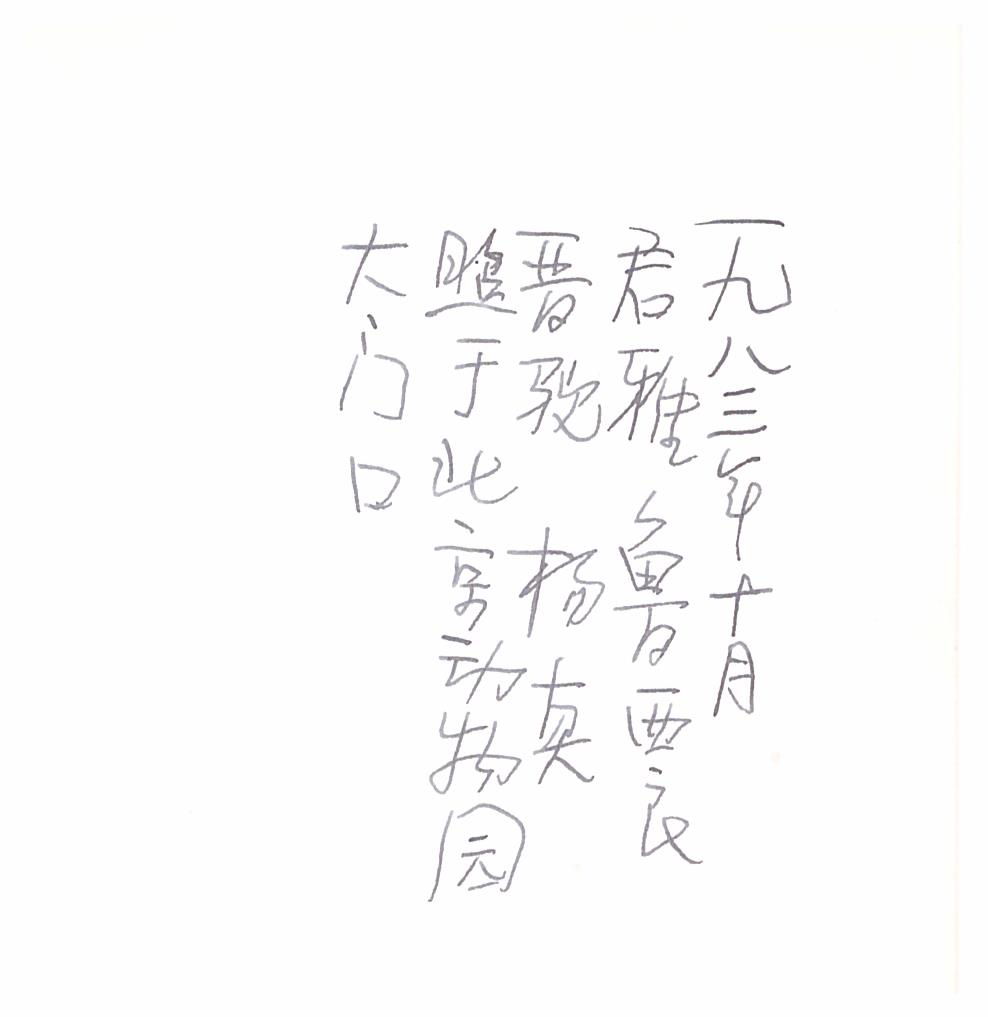 一九八三年十月
君雅 鲁西良
晋骏 杨真
照于北京动物园
大门口